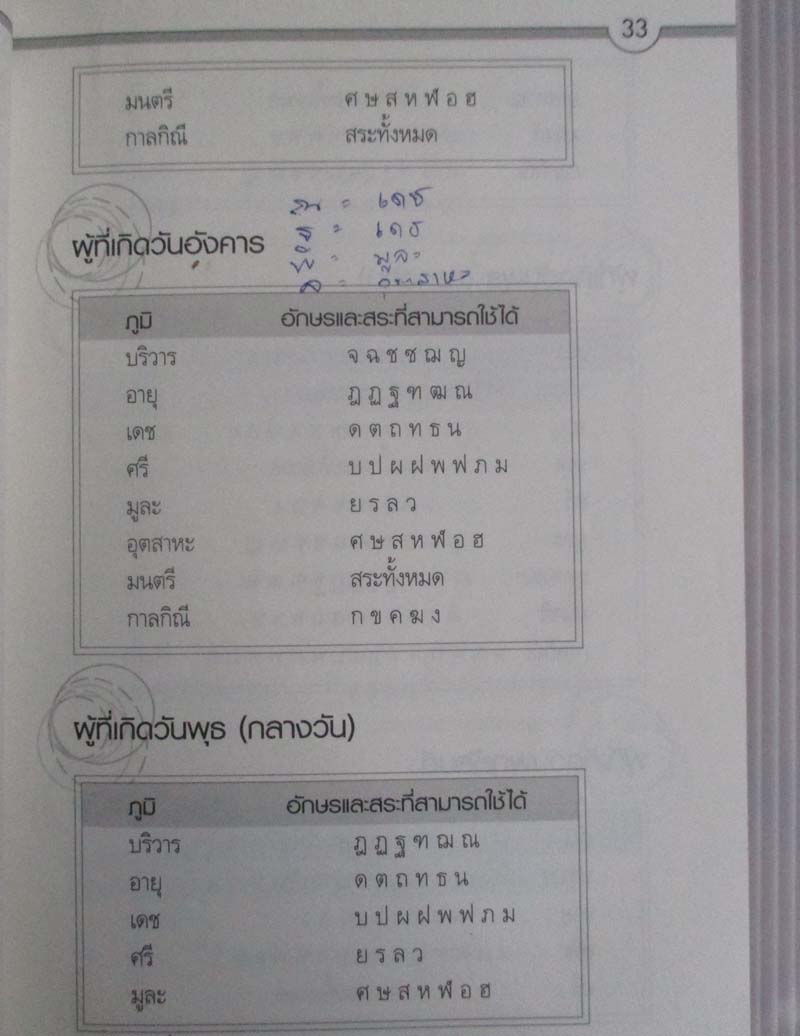 33
มนตรี ศ ษ ส ห ฬ อ ฮ
กาลกิณี สระทั้งหมด
= เดช
ผู้ที่เกิดวันอังคาร ธ = เดช
= มูละ
ล = อุตสาหะ
ภูมิ อักษรและสระที่สามารถใช้ได้
บริวาร จ ฉ ช ซ ฌ ญ
อายุ ฎ ฏ ฐ ฑ ฒ ณ
เดช ด ต ถ ท ธ น
ศรี บ ป ผ ฝ พ ฟ ภ ม
มูละ ย ร ล ว
อุตสาหะ ศ ษ ส ห ฬ อ ฮ
มนตรี สระทั้งหมด
กาลกิณี ก ข ค ฆ ง
ผู้ที่เกิดวันพุธ (กลางวัน)
ภูมิ อักษรและสระที่สามารถใช้ได้
บริวาร ฎ ฏ ฐ ฑ ฒ ณ
อายุ ด ต ถ ท ธ น
เดช บ ป ผ ฝ พ ฟ ภ ม
ศรี ย ร ล ว
มูละ ศ ษ ส ห ฬ อ ฮ